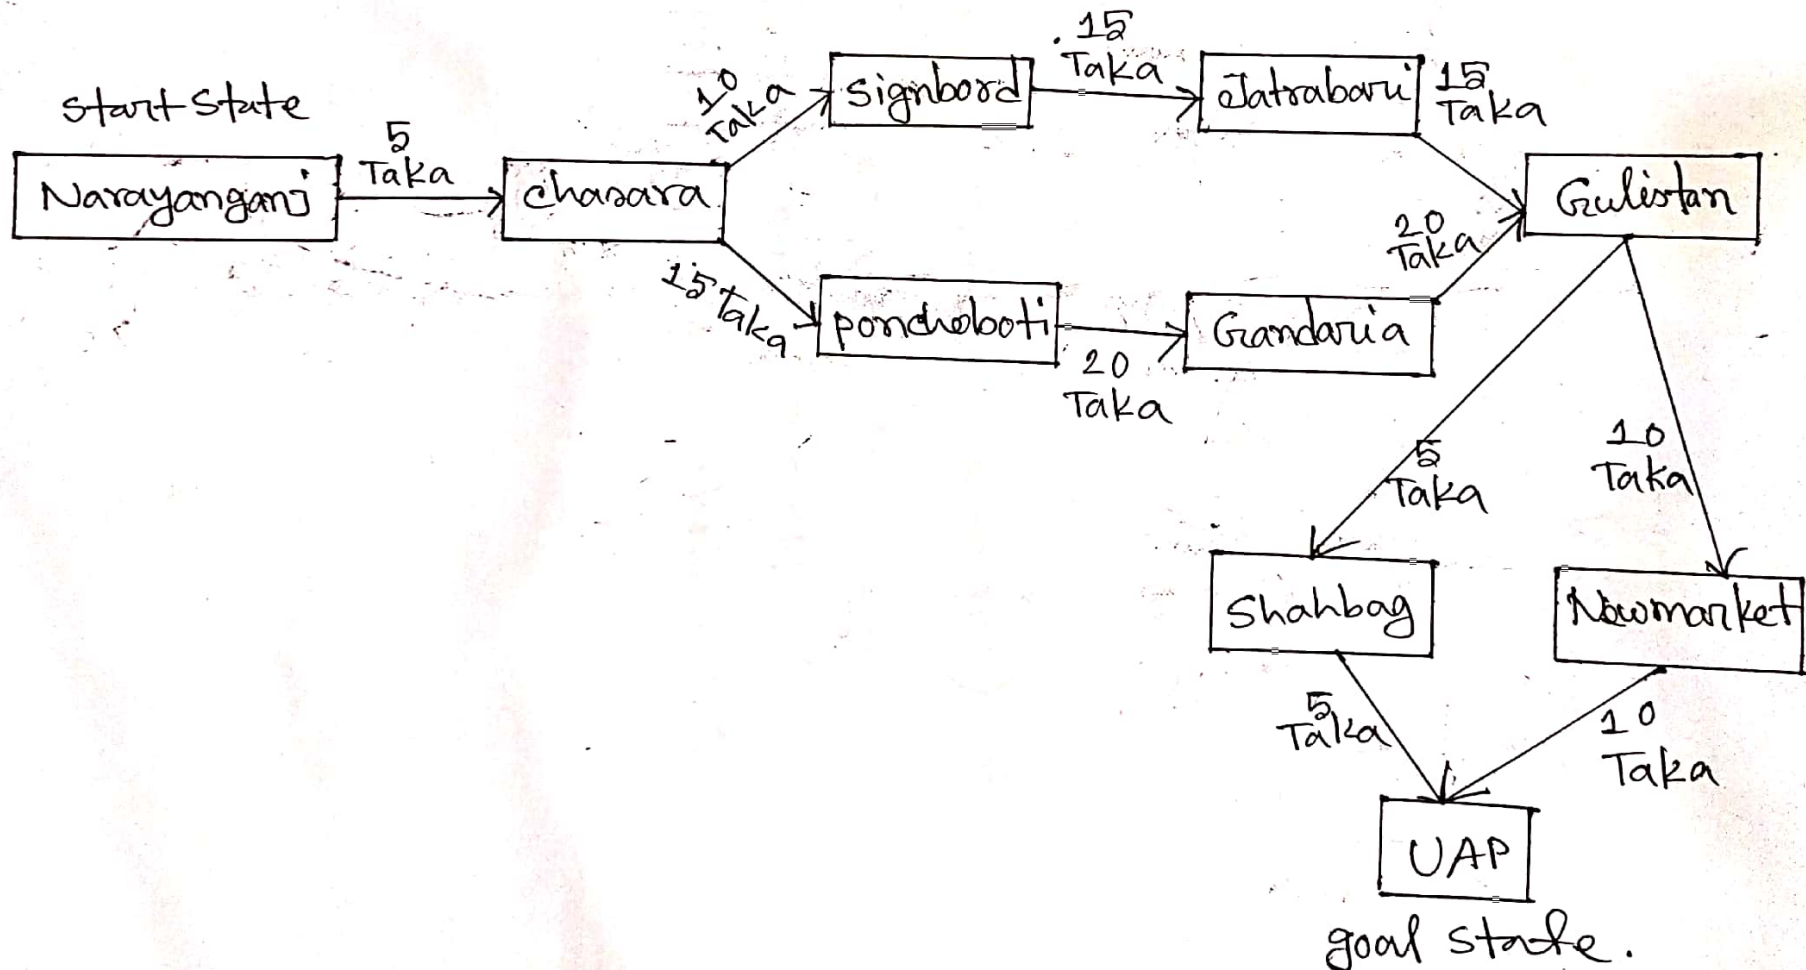 start state
Narayanganj
5
Taka
chasara
10
Taka
signbord
.15
Taka
Jatrabari
15
Taka
15 Taka
poncholoti
20
Taka
Gandaria
20
Taka
Gulistan
5
Taka
10
Taka
Shahbag
Newmarket
5
Taka
10
Taka
UAP
goal state.